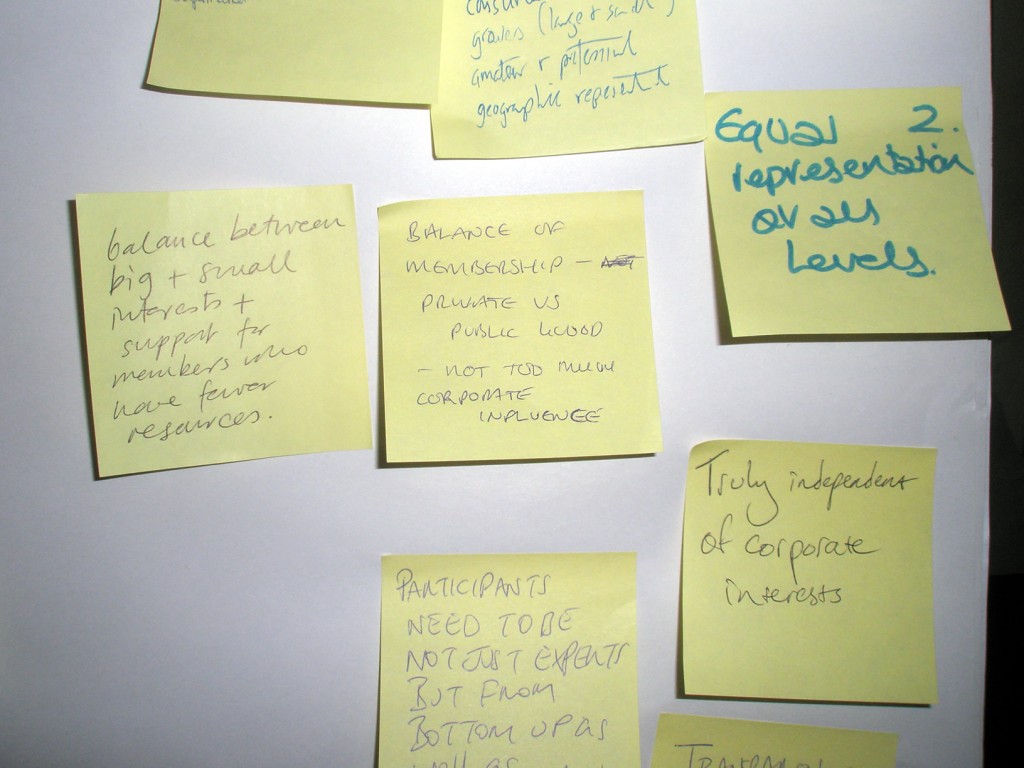 growers (large + small)
amateur + potential
geographic represent
Equal 2.
representation
at all
Levels.
balance between
big + small
interests +
support for
members who
have fewer
resources.
BALANCE OF
MEMBERSHIP –
PRIVATE VS
PUBLIC GOOD
– NOT TOO MUCH
CORPORATE
INFLUENCE
Truly independent
of corporate
interests
PARTICIPANTS
NEED TO BE
NOT JUST EXPERTS
BUT FROM
BOTTOM UP AS
well as